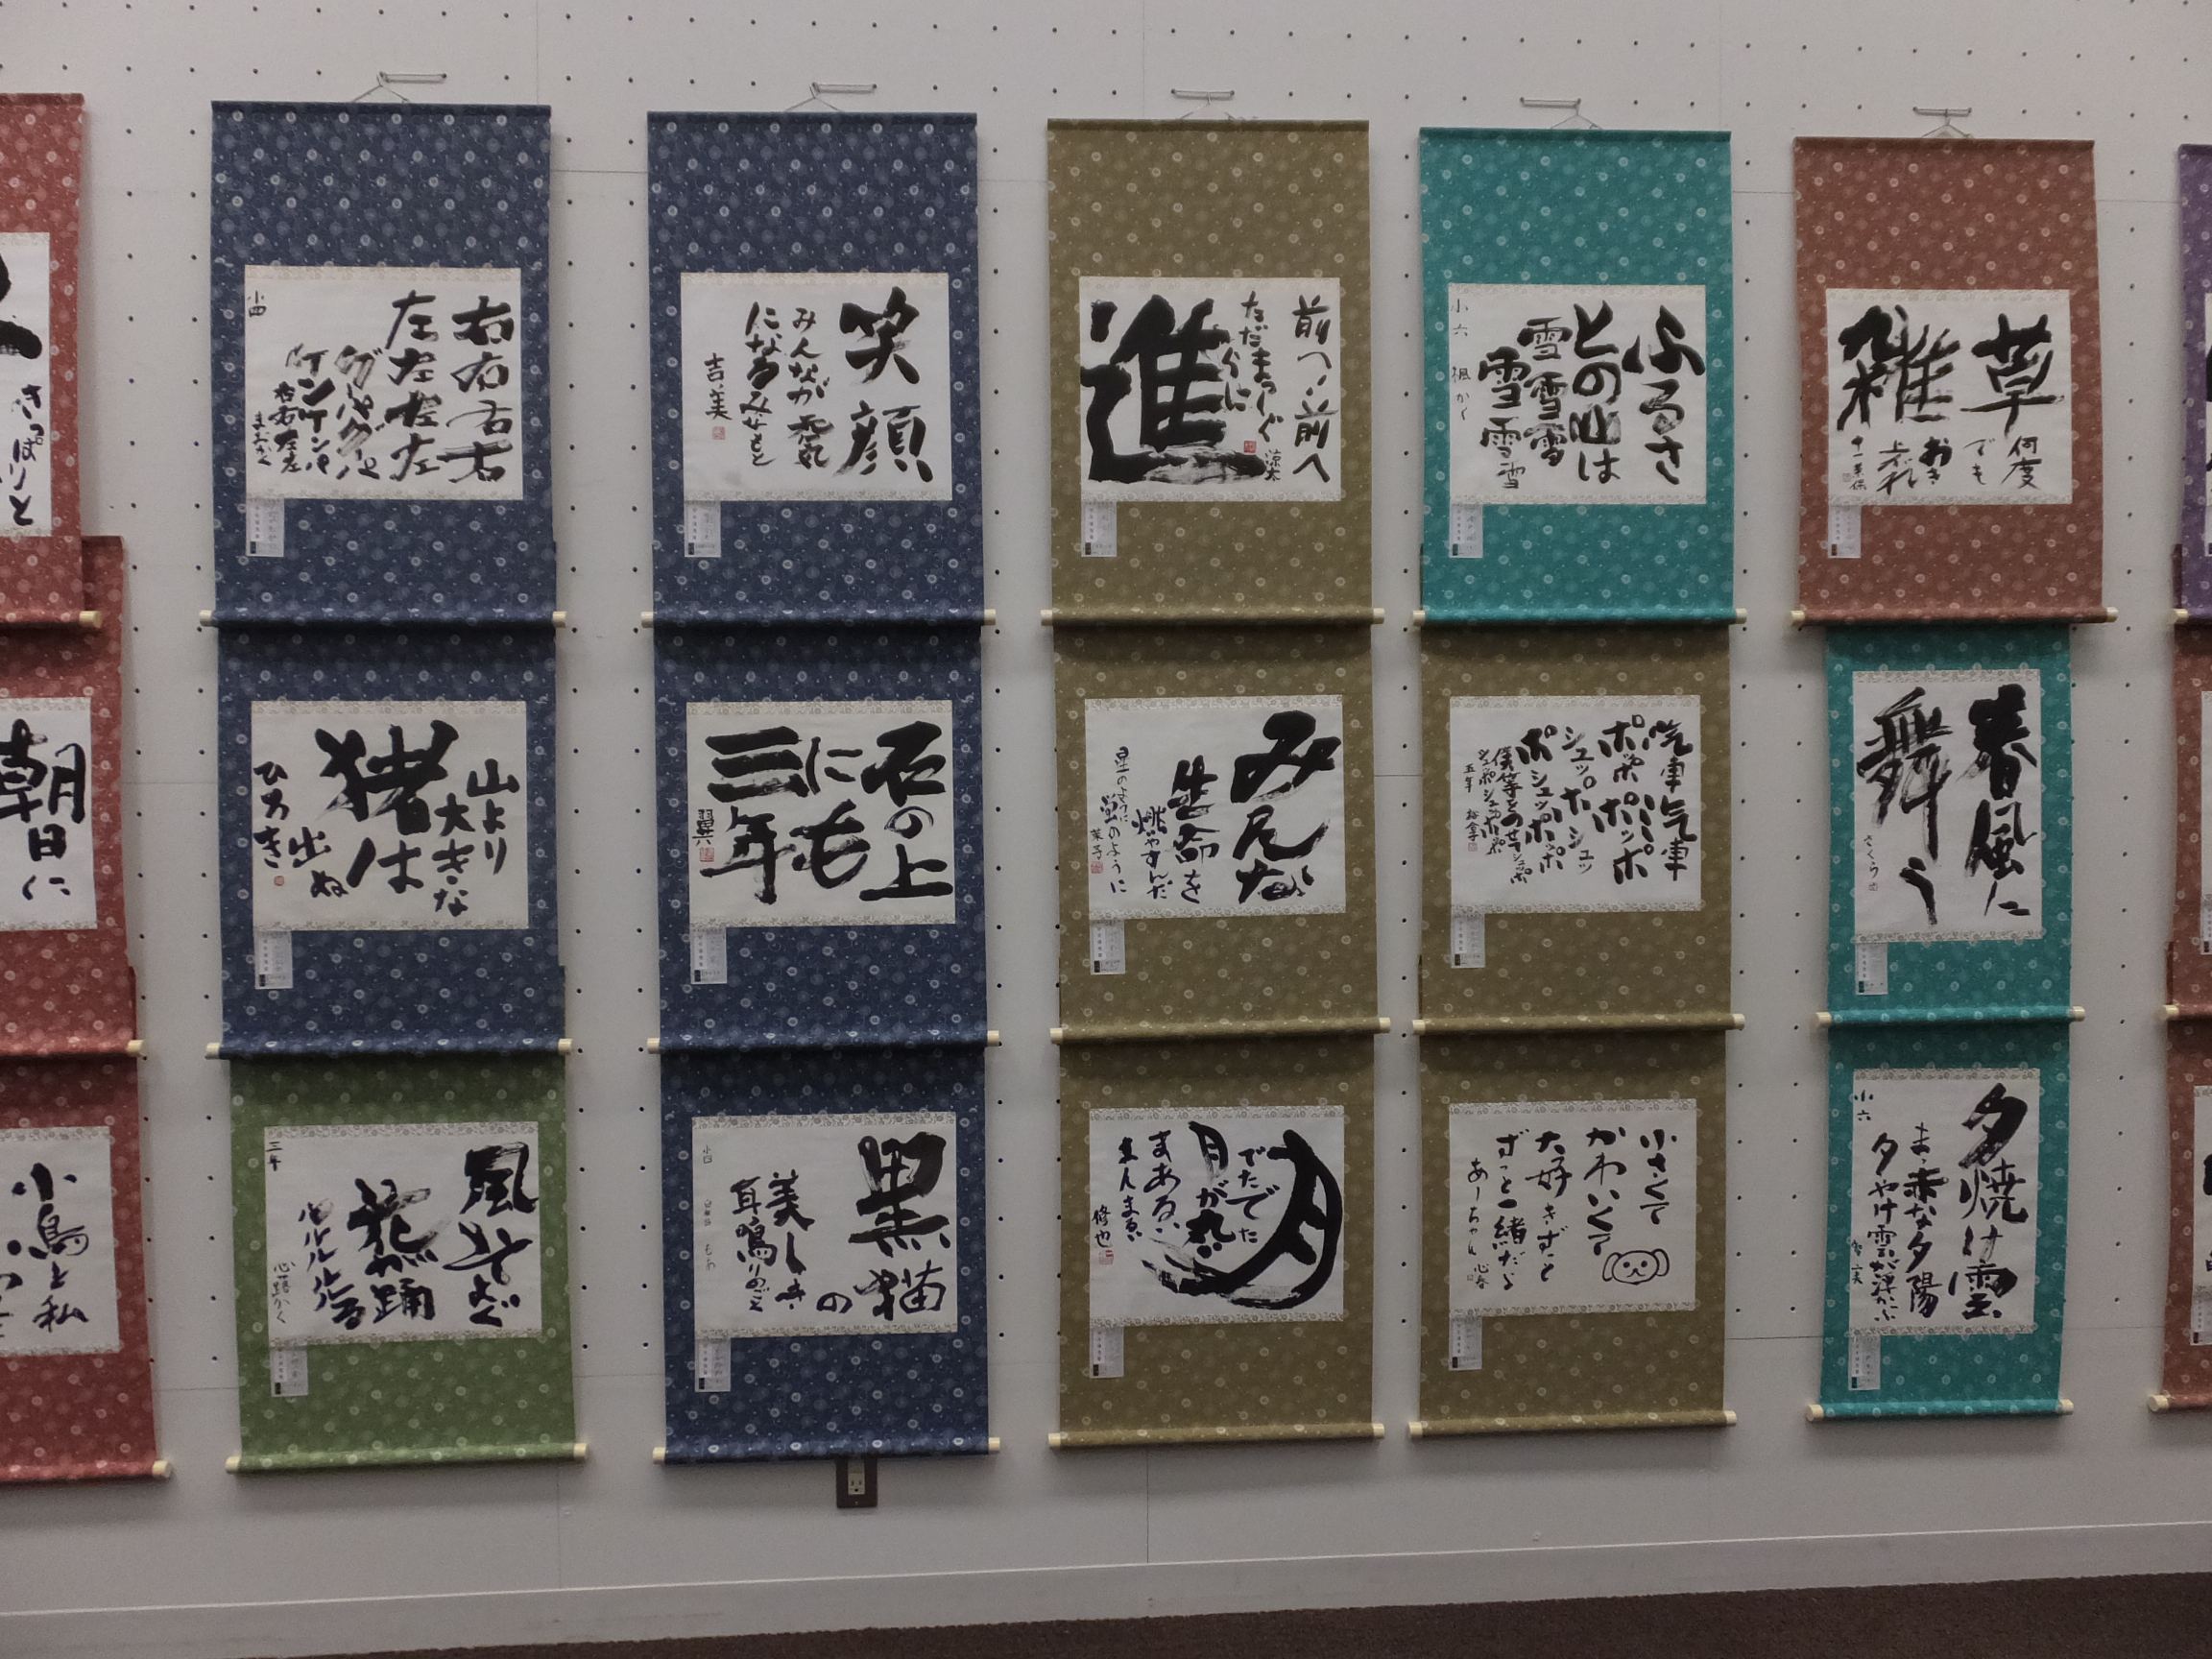 右右右右
左左左左
グーパーグーパー
ケンケンパ
右右左左
小四
笑顔
みんなが
になる
吉美
前へ前へ
ただまっしぐ
らに
進
涼太
ふるさ
との山は
雪雪雪
雪雪雪
小六
草
雑
何度
でも
おき
さっぱりと
山より
大きな
猪は
出ぬ
ひろき
石の上
にも
三年
翼
みんな
生命を
燃やすんだ
星のように
蛍のように
菓子
汽車汽車
ポッポポッポ
シュッポシュッ
ポシュッポッポ
僕等をのせて
シュッポシュッポ
五年
春風に
舞う
さくら
朝日に
風そよぐ
花が踊
ルルルルる
三年
心路かく
黒猫
の
美しき
耳鳴りのごと
小四
月
でたでた
月が
まあるい
まんまるい
修也
小さくて
かわいくて
大好きずっと
ずっと一緒だよ
あーちゃん
心春
夕焼け雲
まっ赤な夕陽
夕やけ雲が浮かぶ
小六
小鳥と私